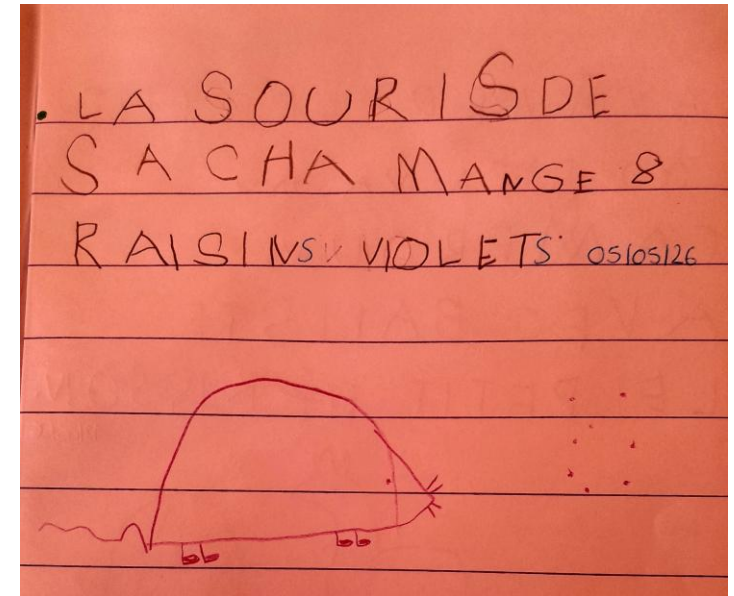 . LA SOURIS DE
SACHA MANGE 8
RAISINS VIOLETS 05/05/26